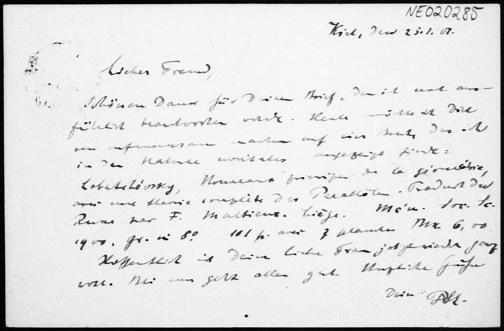 NE020285
Kiel, den 25.1.01.
Lieber Freund,
Schönen Dank für Deinen Brief, den ich
beantworten werde. Heute möchte ich Dich
nur aufmerksam machen auf ein
in den Naturae novitates angezeigt finde:
Lobatchévsky, Nouveaux principes de la géométrie,
avec une théorie complète des Parallèles. Traduct. du
Russe par F. Mallieux. Liège. Mém. Soc. Sc.
1900. gr. in 8º 101 p. av. 3 planches Mk 6,00.
Hoffentlich ist Deine liebe Frau jetzt wieder ganz
wohl. Bei uns geht alles gut. Herzliche Grüße
Dein